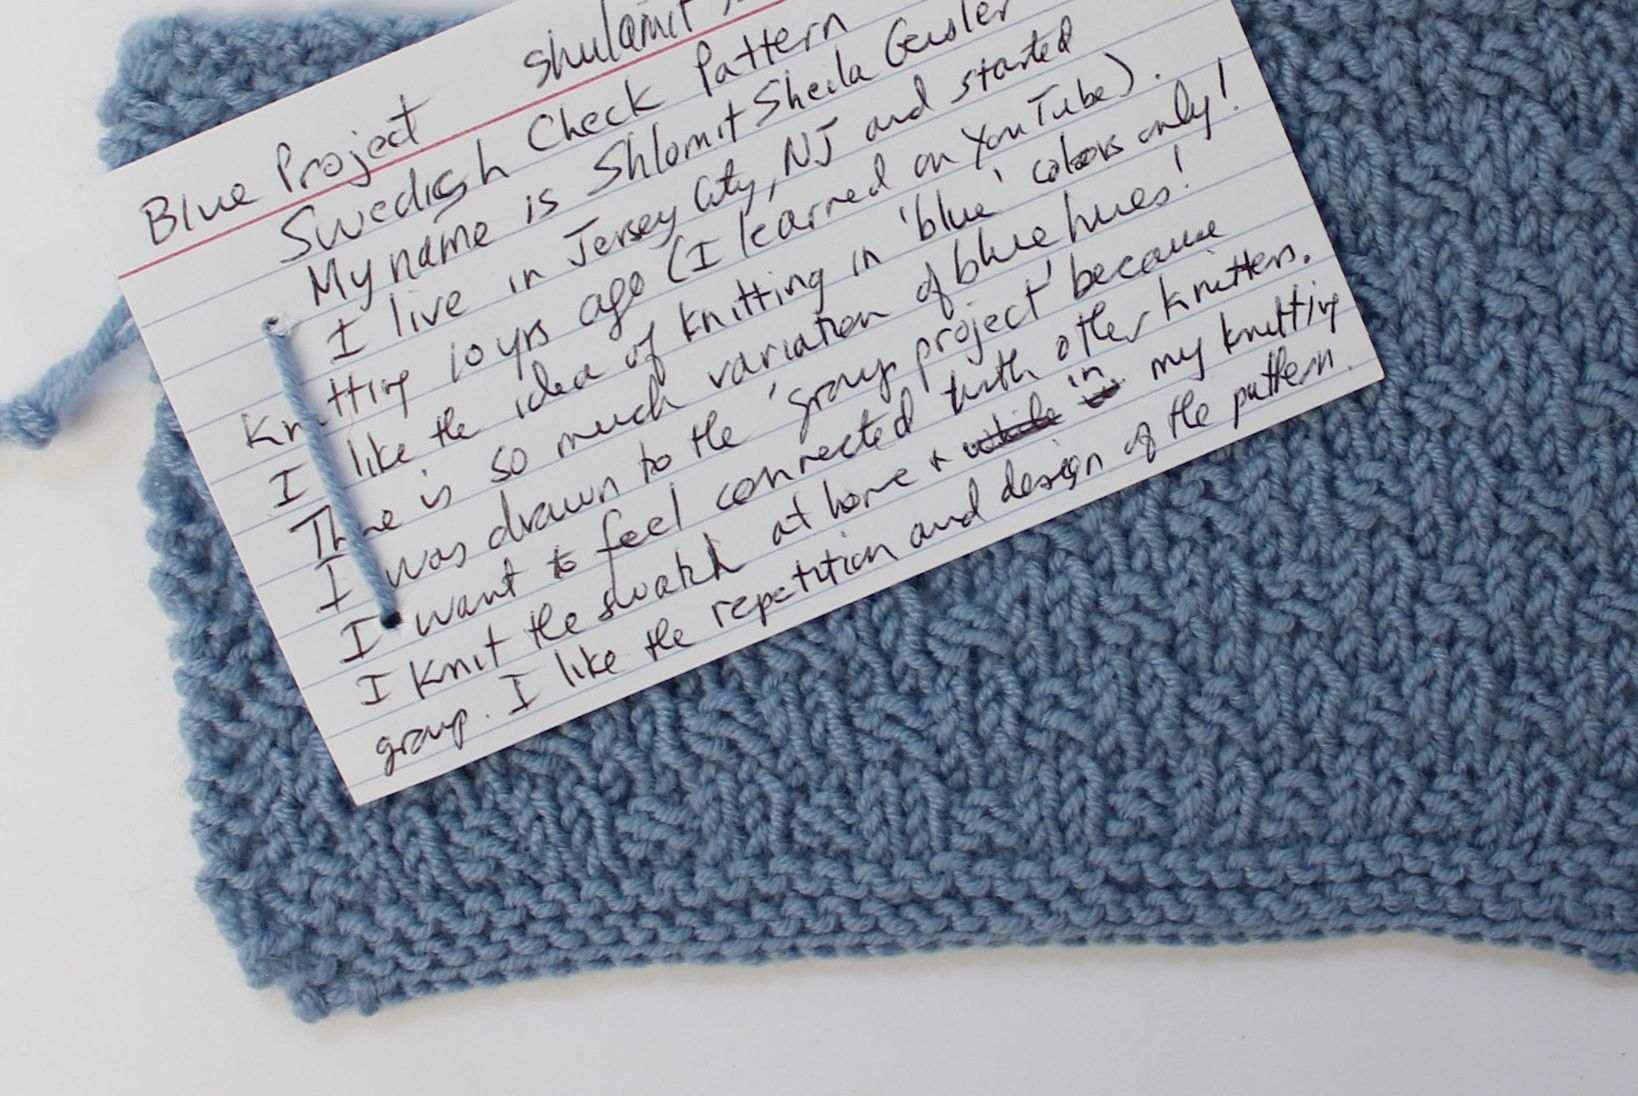 Blue Project Shulamit
Swedish Check Pattern
My name is Shlomit Sheila Geisler
I live in Jersey City, NJ and started
Knitting 10 yrs ago (I learned on YouTube).
I like the idea of knitting in 'blue' colors only!
There is so much variation of blue hues!
I was drawn to the 'group project' because
I want to feel connected with other knitters.
I knit the swatch at home + in my knitting
group. I like the repetition and design of the pattern.